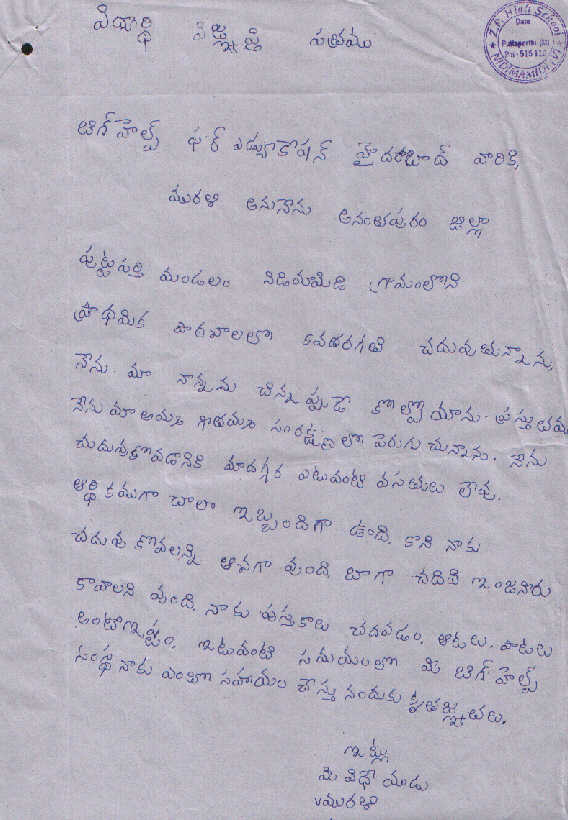 విద్యార్థి విజ్ఞప్తి పత్రము
Z.P. High School
Date
Puttaparthi (M)
Pin-515
NIDIMAMIDI (V)
టిగ్ హెల్ప్ ఫర్ ఎడ్యుకేషన్ హైదరాబాద్ వారికి,
మురళి అనునేను అనంతపురం జిల్లా
పుట్టపర్తి మండలం నిడిమామిడి గ్రామంలోని
ప్రాథమిక పాఠశాలలో 6వతరగతి చదువుతున్నాను.
నేను. మా నాన్నను చిన్నప్పుడే కోల్పోయాను. ప్రస్తుతము
నేను మా అమ్మ సంరక్షణలో పెరుగుచున్నాను. నేను
చదువుకోవడానికి మాదగ్గర ఎటువంటి వసతులు లేవు.
ఆర్థికముగా చాలా ఇబ్బందిగా ఉంది. కాని నాకు
చదువుకోవాలన్ని ఆశగా వుంది. బాగా చదివి ఇంజనీరు
కావాలని వుంది. నాకు పుస్తకాలు చదవడం, ఆటలు, పాటలు
అంటాఇష్టం. ఇటువంటి సమయంలో మీ టిగ్ హెల్ప్
సంస్థ నాకు ఎంతో సహాయం చేస్తునందుకు కృతజ్ఞతలు.
ఇట్లు
మీ విధేయుడు
మురళి